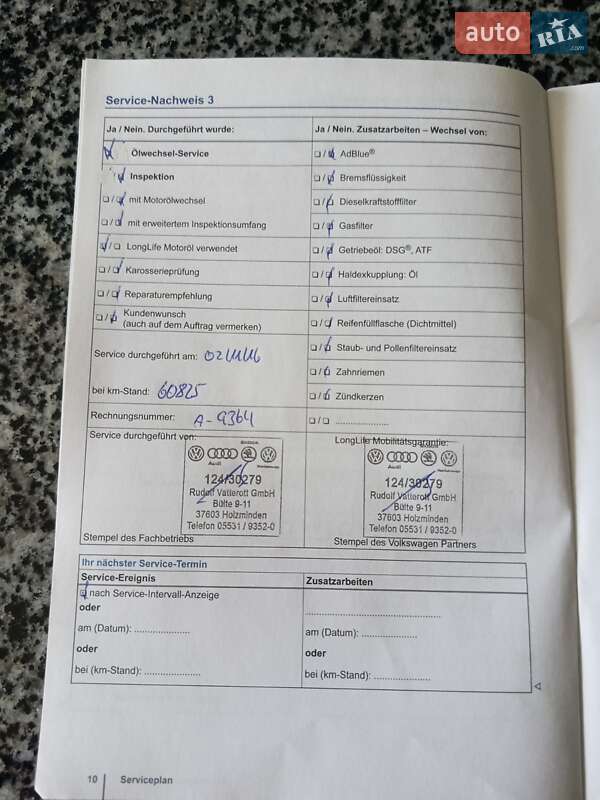 auto RIA.com
Service-Nachweis 3
Ja / Nein. Durchgeführt wurde:
Ölwechsel-Service
Inspektion
mit Motorölwechsel
mit erweitertem Inspektionsumfang
LongLife Motoröl verwendet
Karosserieprüfung
Reparaturempfehlung
Kundenwunsch
(auch auf dem Auftrag vermerken)
Service durchgeführt am:
bei km-Stand: 60825
Rechnungsnummer: A-9364
Service durchgeführt von:
Audi
124/30279
Rudolf Vatterott GmbH
Bülte 9-11
37603 Holzminden
Telefon 05531 / 9352-0
Stempel des Fachbetriebs
Ja / Nein. Zusatzarbeiten – Wechsel von:
AdBlue®
Bremsflüssigkeit
Dieselkraftstofffilter
Gasfilter
Getriebeöl: DSG®, ATF
Haldexkupplung: Öl
Luftfiltereinsatz
Reifenfüllflasche (Dichtmittel)
Staub- und Pollenfiltereinsatz
Zahnriemen
Zündkerzen
....................
LongLife Mobilitätsgarantie:
Audi
124/30279
Rudolf Vatterott GmbH
Bülte 9-11
37603 Holzminden
Telefon 05531 / 9352-0
Stempel des Volkswagen Partners
Ihr nächster Service-Termin
Service-Ereignis
nach Service-Intervall-Anzeige
oder
am (Datum): ....................
oder
bei (km-Stand): ....................
Zusatzarbeiten
..................................................
am (Datum): ....................
oder
bei (km-Stand): ....................
10 Serviceplan